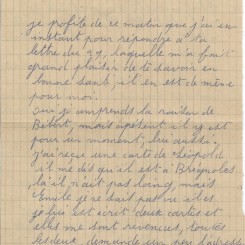 je profite de ce matin que j'ai un
instant pour répondre à ta
lettre du 29, laquelle m'a fait
grand plaisir de te savoir en
bonne santé, il en est de même
pour moi.
Oui je comprends la raison de
Bébert, mais à présent il y est
pour un moment, lui aussi.
j'ai reçu une carte de Léopold
il me dis qu'il est à Brignoles
là il n'ait pas loing, mais
Emile je ne sais pas où il es
je lui est ecrit deux cartes et
elles me sont revenues, toutes
les deux, demande un peu l'adres